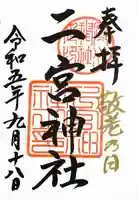 奉拝
敬老の日
二宮神社
令和五年九月十八日